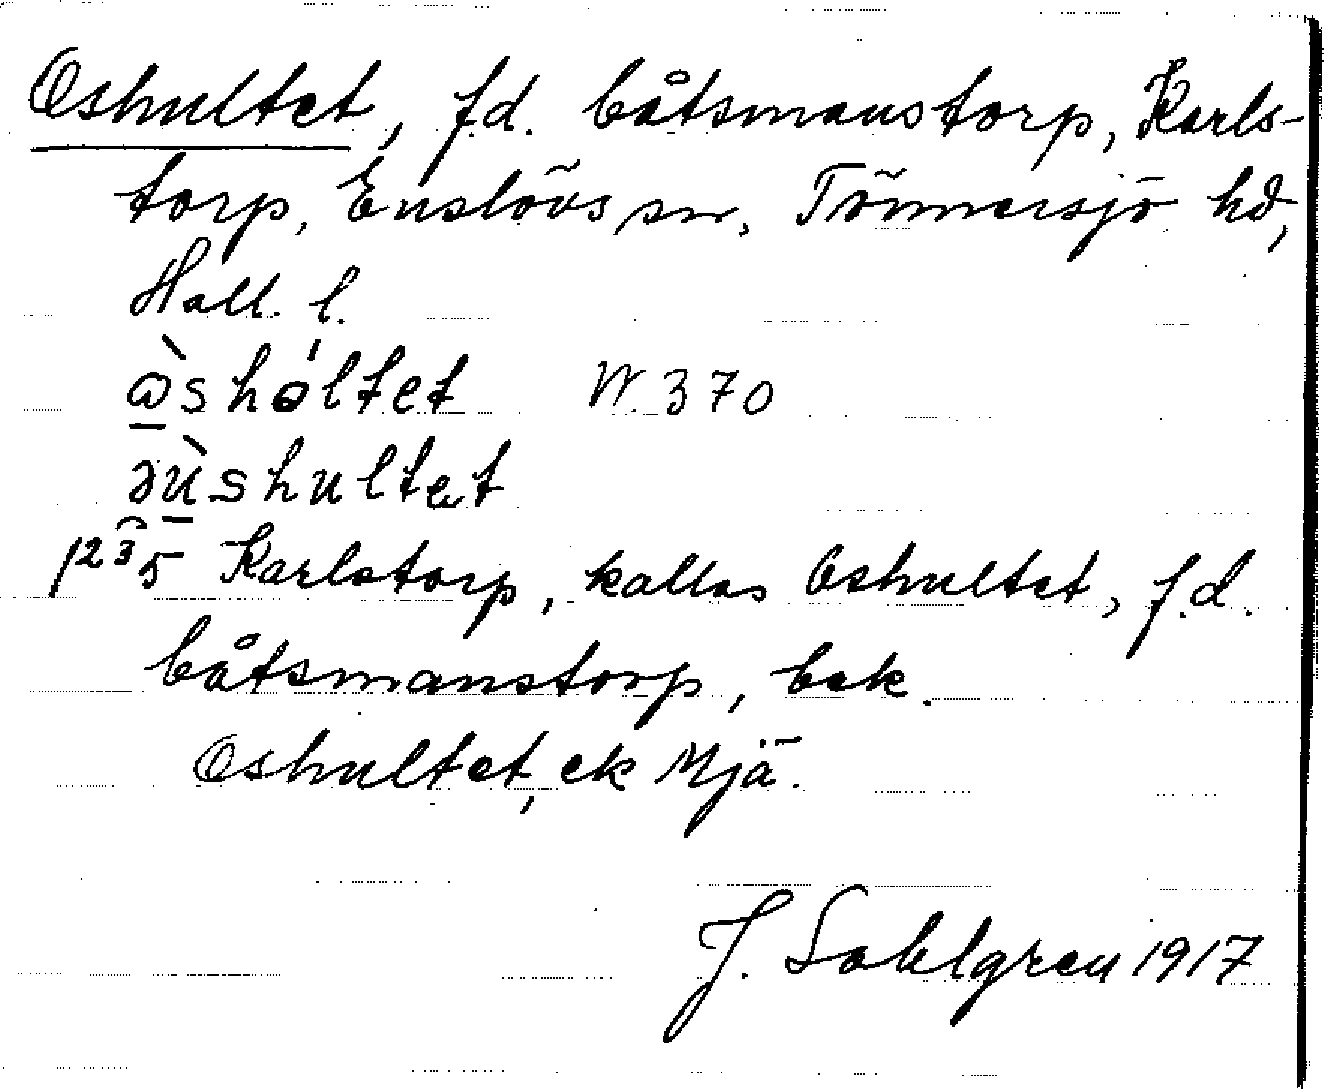 Oshultet, f.d. båtsmanstorp, Karls-
torp, Enslövs sn, Tönnersjö hd,
Hall. l.
ὼshóltet W. 370
ɜùshultet
1 2 3 5 Karlstorp, kallas Oshultet, f.d.
båtsmanstorp, bek.
Oshultet, ek Mjä.
J. Sahlgren 1917